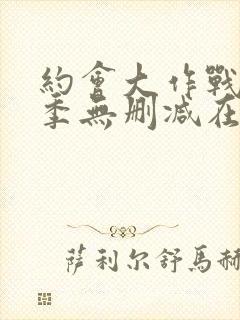 約會大作戰
季無刪减在
萨利尔舒馬赫